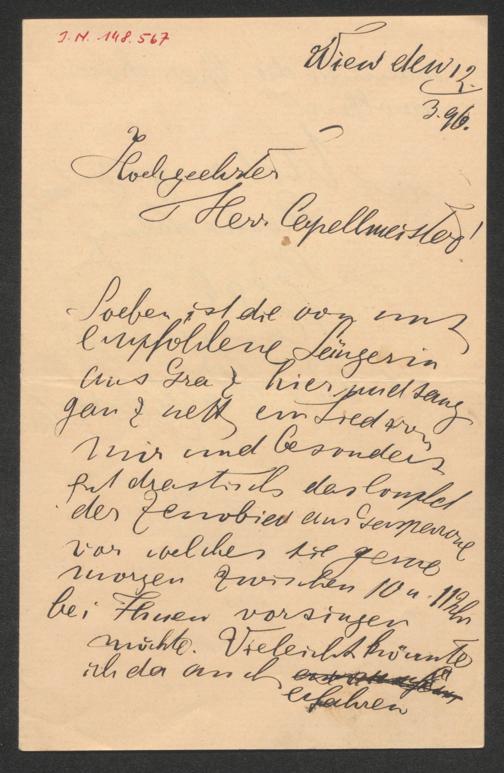 J.N. 148.567
Wien den 12.
3. 96.
Hochgeehrter
Herr Capellmeister!
Soeben ist die von mir
empfohlene Sängerin
aus Graz hier und sang
ganz nett ein Lied von
mir und besonders
gut drastisch das Couplet
der Zenobia aus Gasparone
vor welches sie gerne
morgen zwischen 10 u. 11 Uhr
bei Ihnen vorsingen
möchte. Vieleicht könnte
ich da auch
erfahren